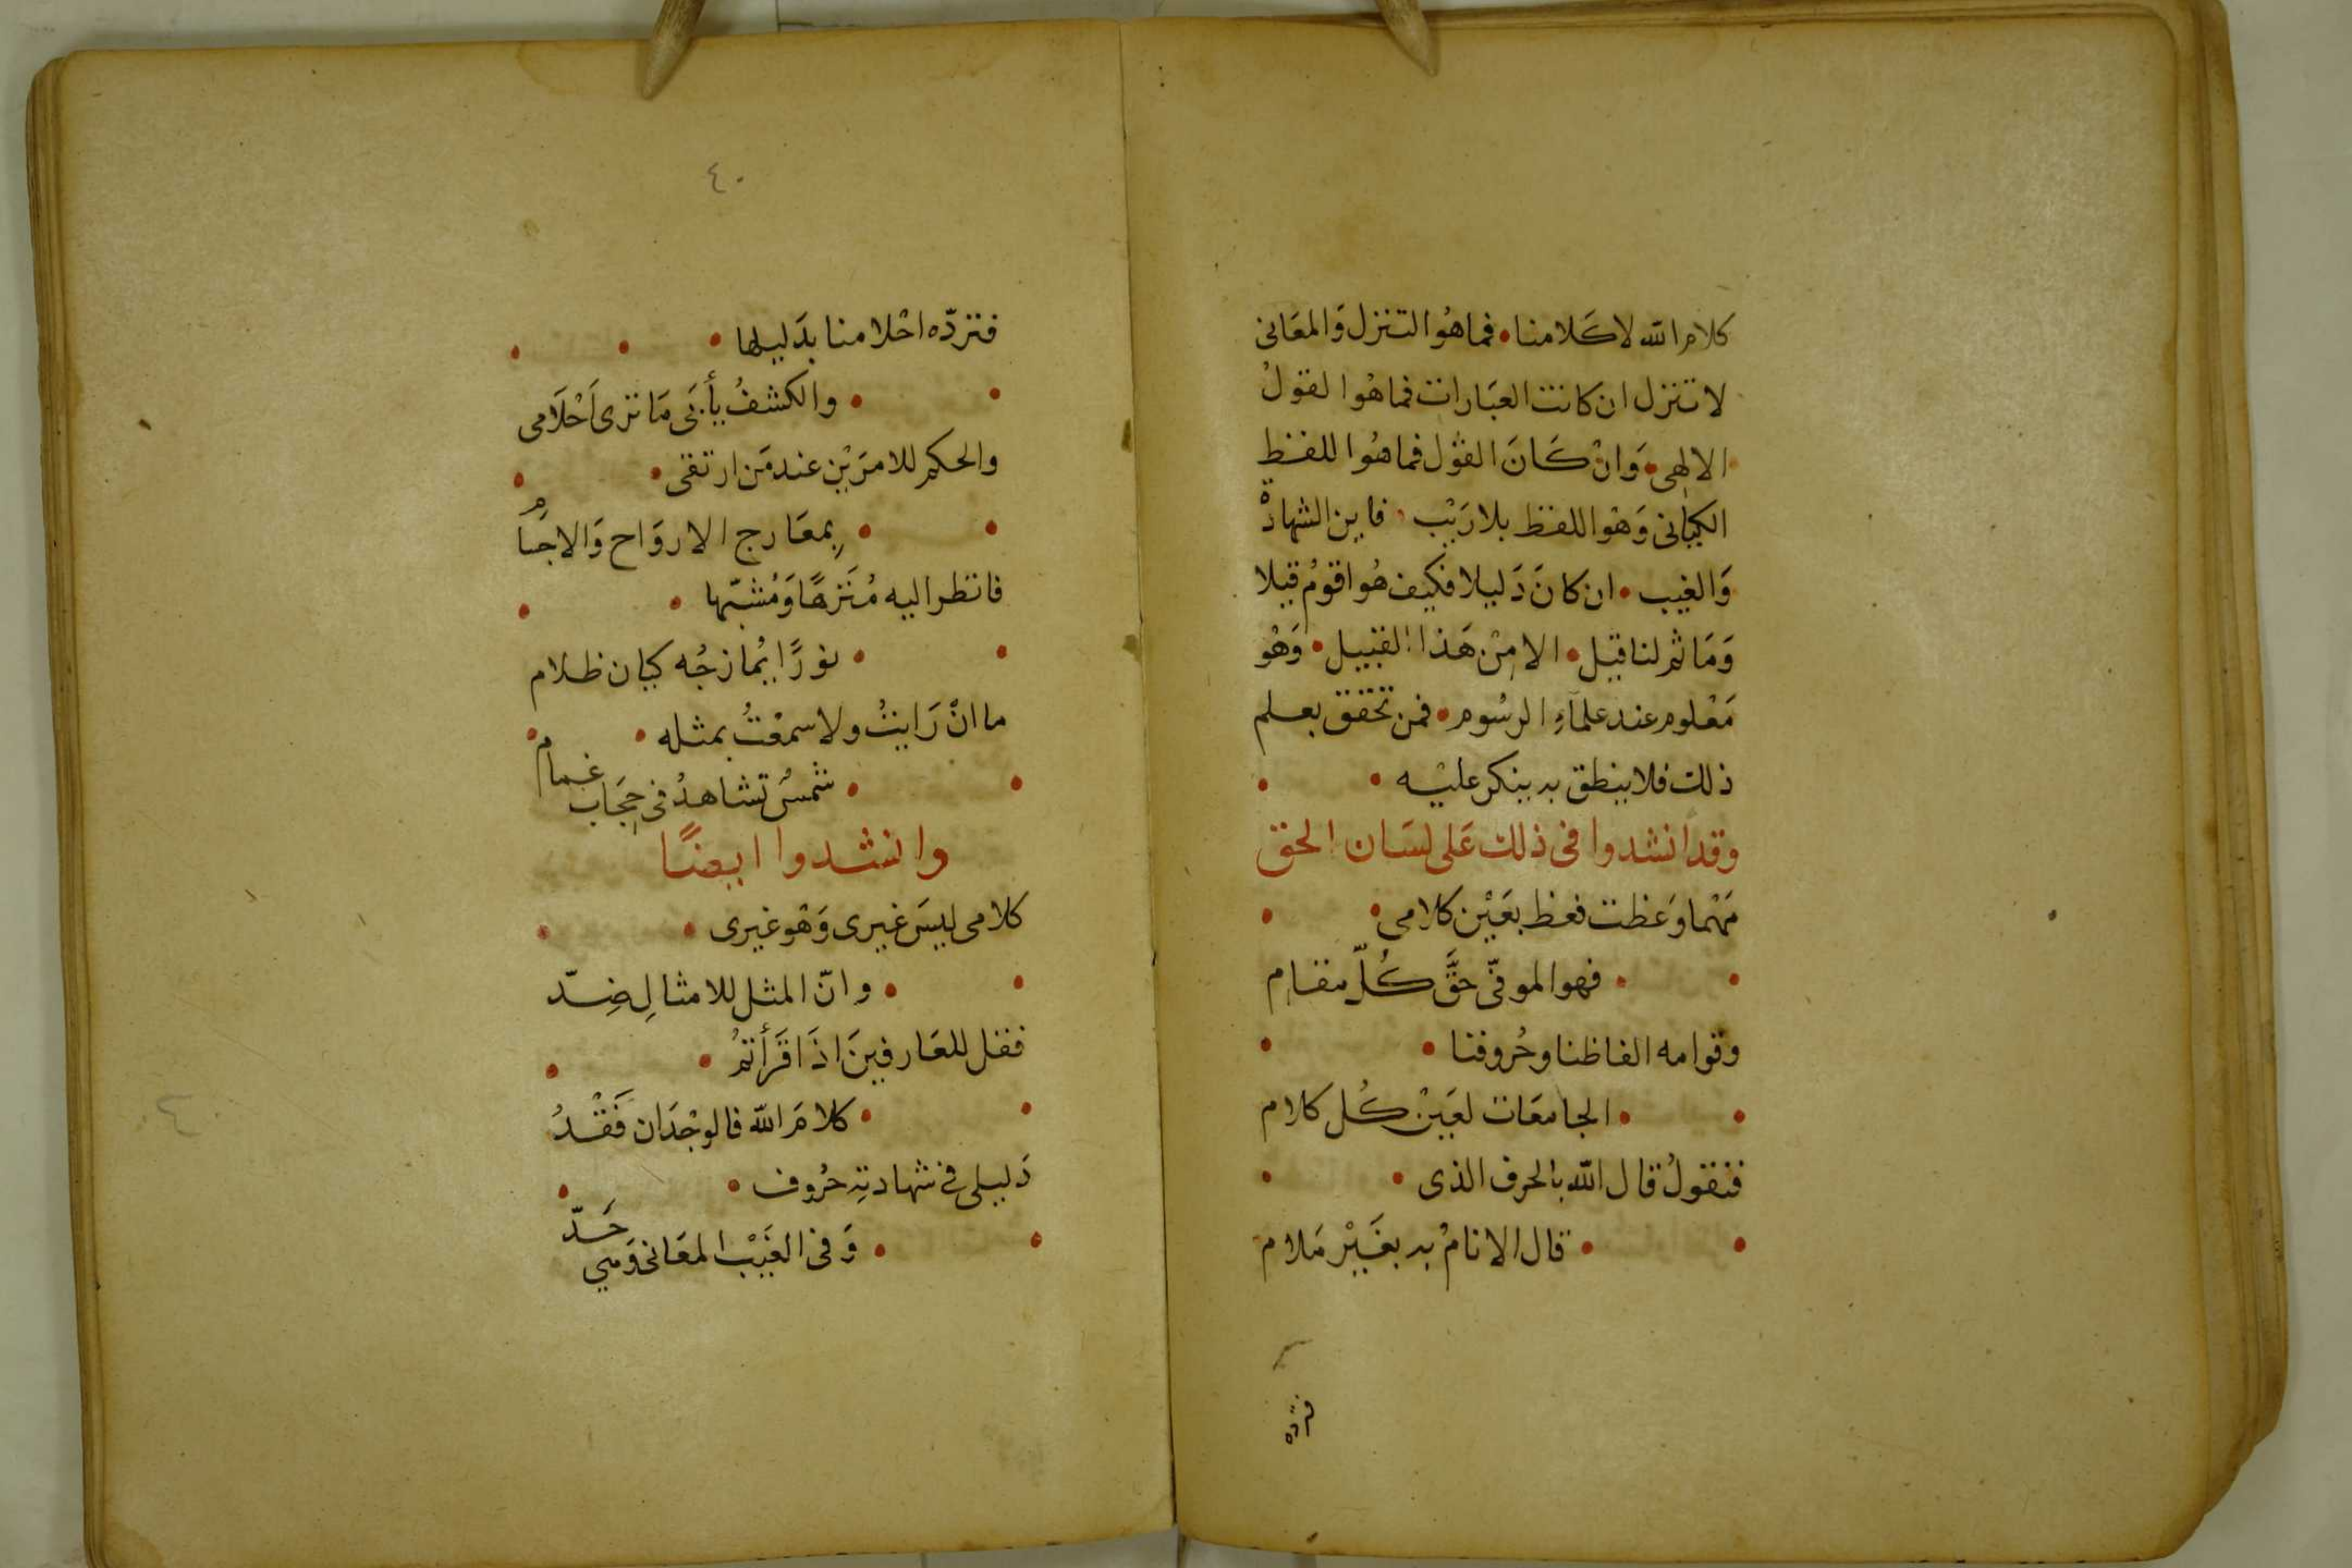 كلام الله لا كَلامنا • فما هُوا لتنزل وَالمعَانى
لا تنزل ان كانت العبَارات فما هُوا لقولُ
الالهى • وَانْ كَانَ القوْل فما هُوا للفظ
الكيَانى وَهوَ اللفظ بلا رَيْب • فاين الشهادة
وَالغيب • ان كانَ دَليلا فكيف هُوا قومُ قيلا
وَمَا ثم لنا قيل • الا مِنْ هَذا القبيل • وَهُو
مَعْلوم عند علمآءِ الرسُوم • فمن تحقق بعلم
ذلك فلا ينطق به ينكر عليْه •
وقد انشدوا فى ذلك عَلى لسَان الحق
مَهْما وَعظت فعظ بعَيْن كلامى •
• فهو الموفّى حَقَّ كُلّ مقام
وقوامه الفاظنا وحُروفنا •
• الجامعَات لعَيْن كُل كلام
فنقولُ قال الله بالحرف الذى •
• قال الانامُ به بغَيْر مَلام
فترده
٤٠
فتردّه احْلامنا بدَليلها •
• والكشفُ يأبَى مَا ترى اَحْلَامى
والحكم للامرَيْن عند مَن ارتقى •
• بِمعَارج الاروَاح وَالاجسام
فانظر اليه مُنَزهًا وَمُشبّها •
• نورًا يُمازجُه كيان ظلام
ما انْ رَايتُ ولا سمعْتُ بمثله •
• شمسٌ تشاهدُ فى حِجَاب غمام
وانشدوا ايضًا
كلامى ليسَ غيرى وَهو غيرى •
• وانّ المثل للامثالِ ضِدّ
فقل للعَارفينَ اذَا قَرَأتمُ •
• كلامَ الله فالوجْدَان فَقْدُ
دَليلى فى شهادتِهِ حُروف •
• وَفى الغَيْب المعَانى وَهى حَدّ